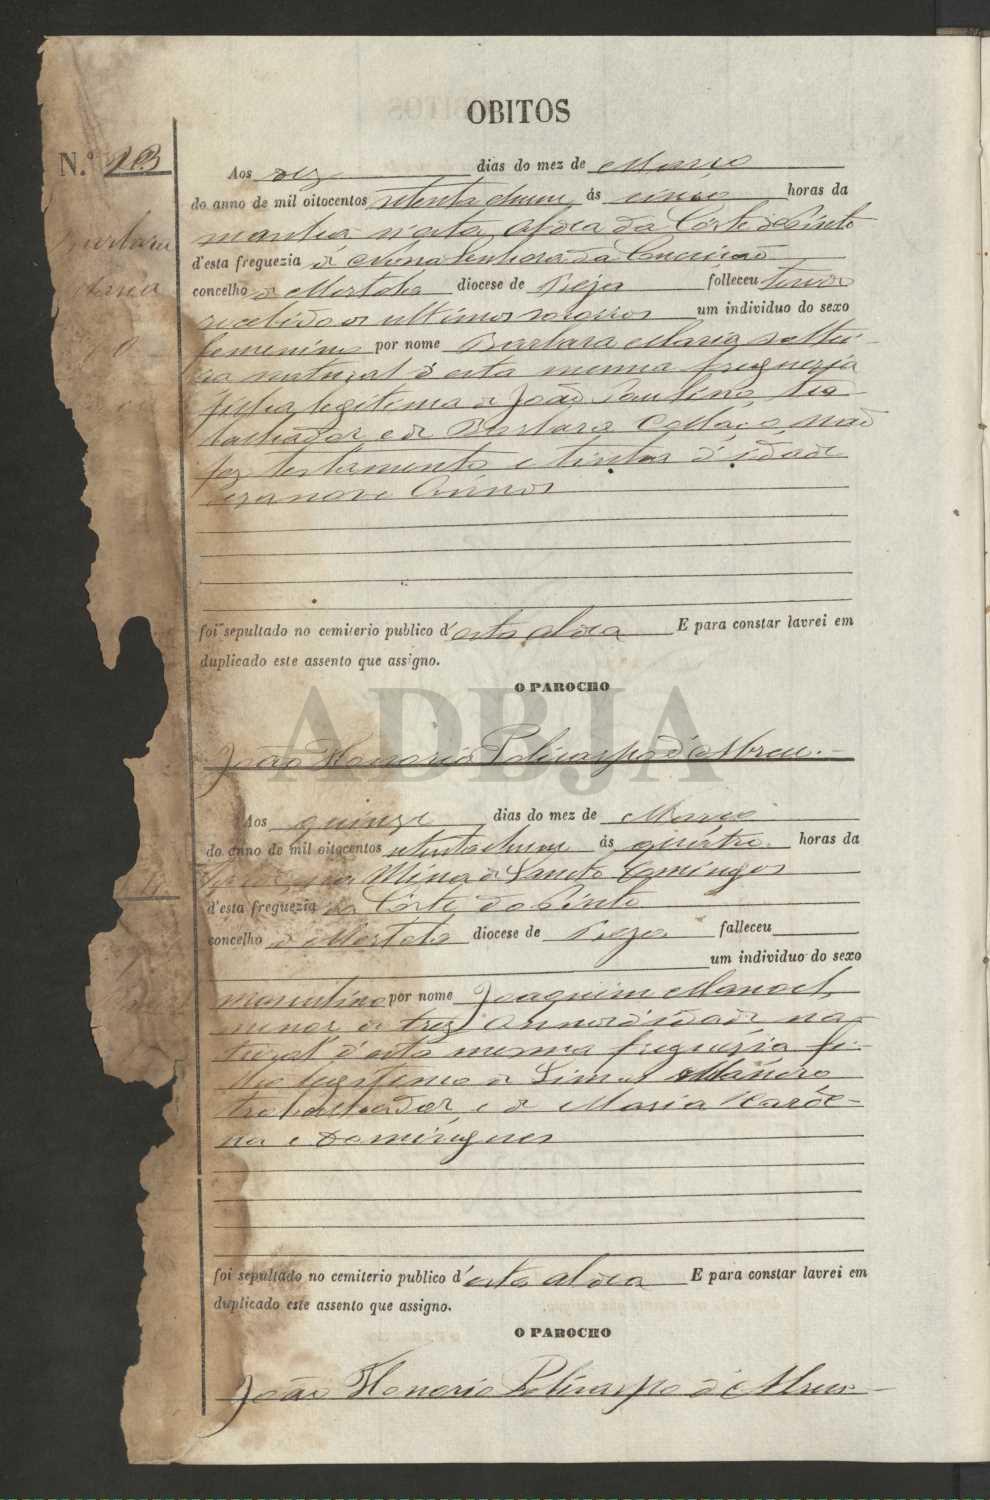 OBITOS
N.º 13
Aos dez dias do mez de Março
do anno de mil oitocentos oitenta e hum, ás cinco horas da
manhã n'esta Aldea da Corte do Pinto
d'esta freguezia de Nossa Senhora da Conceição
concelho de Mertola diocese de Beja falleceu tendo
recebido os ultimos socorros um individuo do sexo
femenino por nome Barbara Maria soltei-
ra natural d'esta mesma freguezia
filha legitima de João Paulino, tra-
balhador, e de Barbara Collaço não
fez testamento e tinha d'idade
annos
foi sepultado no cemiterio publico d'esta aldea E para constar lavrei em
duplicado este assento que assigno.
O PAROCHO
ADBJA
João Honorio Policarpo d'Abreu.
Aos quinze dias do mez de Março
do anno de mil oitocentos oitenta e hum ás quatro horas da
tarde, na Mina de Sancto Domingos
d'esta freguezia da Côrte do Pinto
concelho de Mertola diocese de Beja falleceu
um individuo do sexo
masculino por nome Joaquim Manoel,
menor de trez annos d'idade na-
tural d'esta mesma freguezia fi-
lho legitimo de
trabalhador, e de Maria
na e Domingues
foi sepultado no cemiterio publico d'esta aldea E para constar lavrei em
duplicado este assento que assigno.
O PAROCHO
João Honorio Policarpo d'Abreu